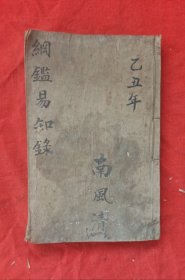 乙丑年
南風
綱鑑易知錄